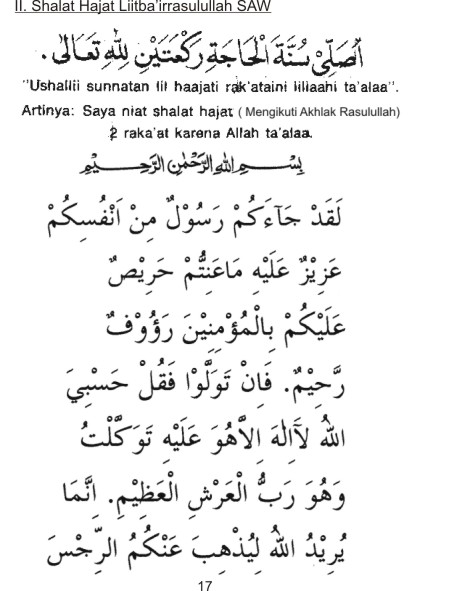 II. Shalat Hajat Liitba'irrasulullah SAW
اُصَلِّيْ سُنَّةَ الْحَاجَةِ رَكْعَتَيْنِ لِلّٰهِ تَعَالٰى.
"Ushallii sunnatan lil haajati rak'ataini lillaahi ta'alaa".
Artinya: Saya niat shalat hajat ( Mengikuti Akhlak Rasulullah)
2 raka'at karena Allah ta'alaa.
بِسْــمِ اللهِ الرَّحْمٰنِ الرَّحِــيْــمِ
لَقَدْ جَآءَكُمْ رَسُوْلٌ مِنْ اَنْفُسِكُمْ
عَزِيْزٌ عَلَيْهِ مَاعَنِتُّمْ حَرِيْصٌ
عَلَيْكُمْ بِالْمُؤْمِنِيْنَ رَؤُوْفٌ
رَّحِيْمٌ. فَاِنْ تَوَلَّوْا فَقُلْ حَسْبِيَ
اللهُ لَآاِلٰهَ اِلاَّهُوَ عَلَيْهِ تَوَكَّلْتُ
وَهُوَ رَبُّ الْعَرْشِ الْعَظِيْمِ. اِنَّمَا
يُرِيْدُ اللهُ لِيُذْهِبَ عَنْكُمُ الرِّجْسَ
17